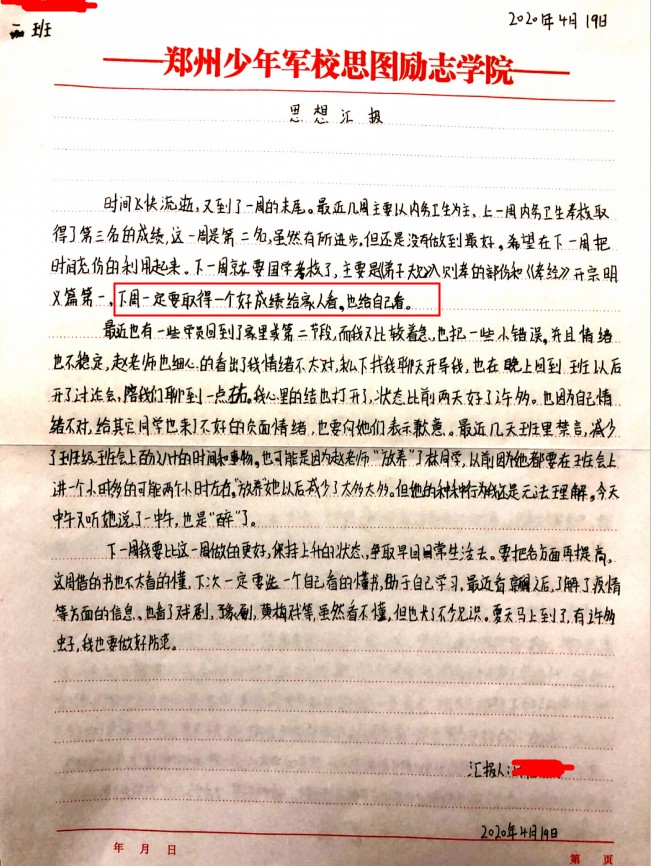 2020年4月19日
二班
郑州少年军校思图励志学院
思想汇报
时间飞快流逝,又到了一周的末尾。最近几周主要以内务卫生为主,上一周内务卫生考核取
得了第三名的成绩,这一周是第二名,虽然有所进步,但还是没有做到最好。希望在下一周把
时间充份的利用起来。下一周就要国学考核了,主要是《弟子规》入则孝的部份和《孝经》开宗明
义篇第一。下周一定要取得一个好成绩给家人看,也给自己看。
最近也有一些学员回到了家里或第二节段,而我又比较着急,也犯一些小错误,并且情绪
也不稳定,赵老师也细心的看出了我情绪不太对,私下找我聊天开导我,也在晚上回到班以后
开了讨论会,陪我们聊到一点左右。我心里的结也打开了,状态比前两天好了许多。也因为自己情
绪不对,给其它同学也来了不好的负面情绪,也要向她们表示歉意。最近几天班里禁言,减少
了班级班会上百分之八十的时间和事物。也可能是因为赵老师“放养”了林同学,从前因为她都要在班会上
讲一个小时多的可能两个小时左右,“放养”她以后减少了太多太多。但她的种种行为我还是无法理解。今天
中午又听她说了一中午,也是“醉”了。
下一周我要比这一周做的更好,保持上升的状态,争取早回日常生活去。要把各方面再提高。
这周借的书也不太看的懂,下次一定要选一个自己看的懂书,助于自己学习,最近看新闻之后,了解了疫情
等方面的信息。也看了戏剧,豫剧,黄梅戏等,虽然看不懂,但也长了不少见识。夏天马上到了,有许多
虫子,我也要做好防范。
汇报人:
2020年4月19日
年 月 日
第 页